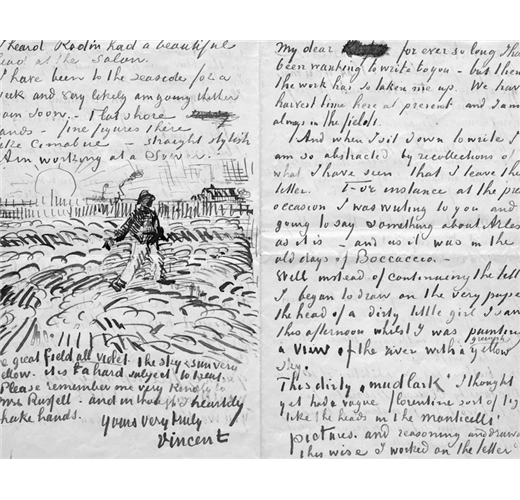 I heard Rodin had a beautiful
head at the Salon.
I have been to the seaside for a
week and very likely am going thither
again soon. - Flat shore
sands - fine figures there
like Cimabue - straight stylish
Am working at a Sower.
the great field all violet the sky & sun very
yellow. it is a hard subject to treat.
Please remember me very kindly to
mrs Russell - and in thought heartily
shake hands.
Yours very truly
Vincent
My dear for ever so long I ha
been wanting to write to you - but then
the work has so taken me up. We have
harvest time here at present and I am
always in the fields.
And when I sit down to write I
am so abstracted by recollections of
what I have seen that I leave the
letter. For instance at the pre
occasion I was writing to you and
going to say something about Arles
as it is - and as it was in the
old days of Boccaccio. -
Well instead of continuing the lett
I began to draw on the very paper
the head of a dirty little girl I saw
this afternoon whilst I was painting
a view of the river with a greenish yellow
sky.
This dirty "mudlark" I thought
yet had a vague florentine sort of fig
like the heads in the monticelli
pictures. and reasoning and drawi
this wise I worked on the letter